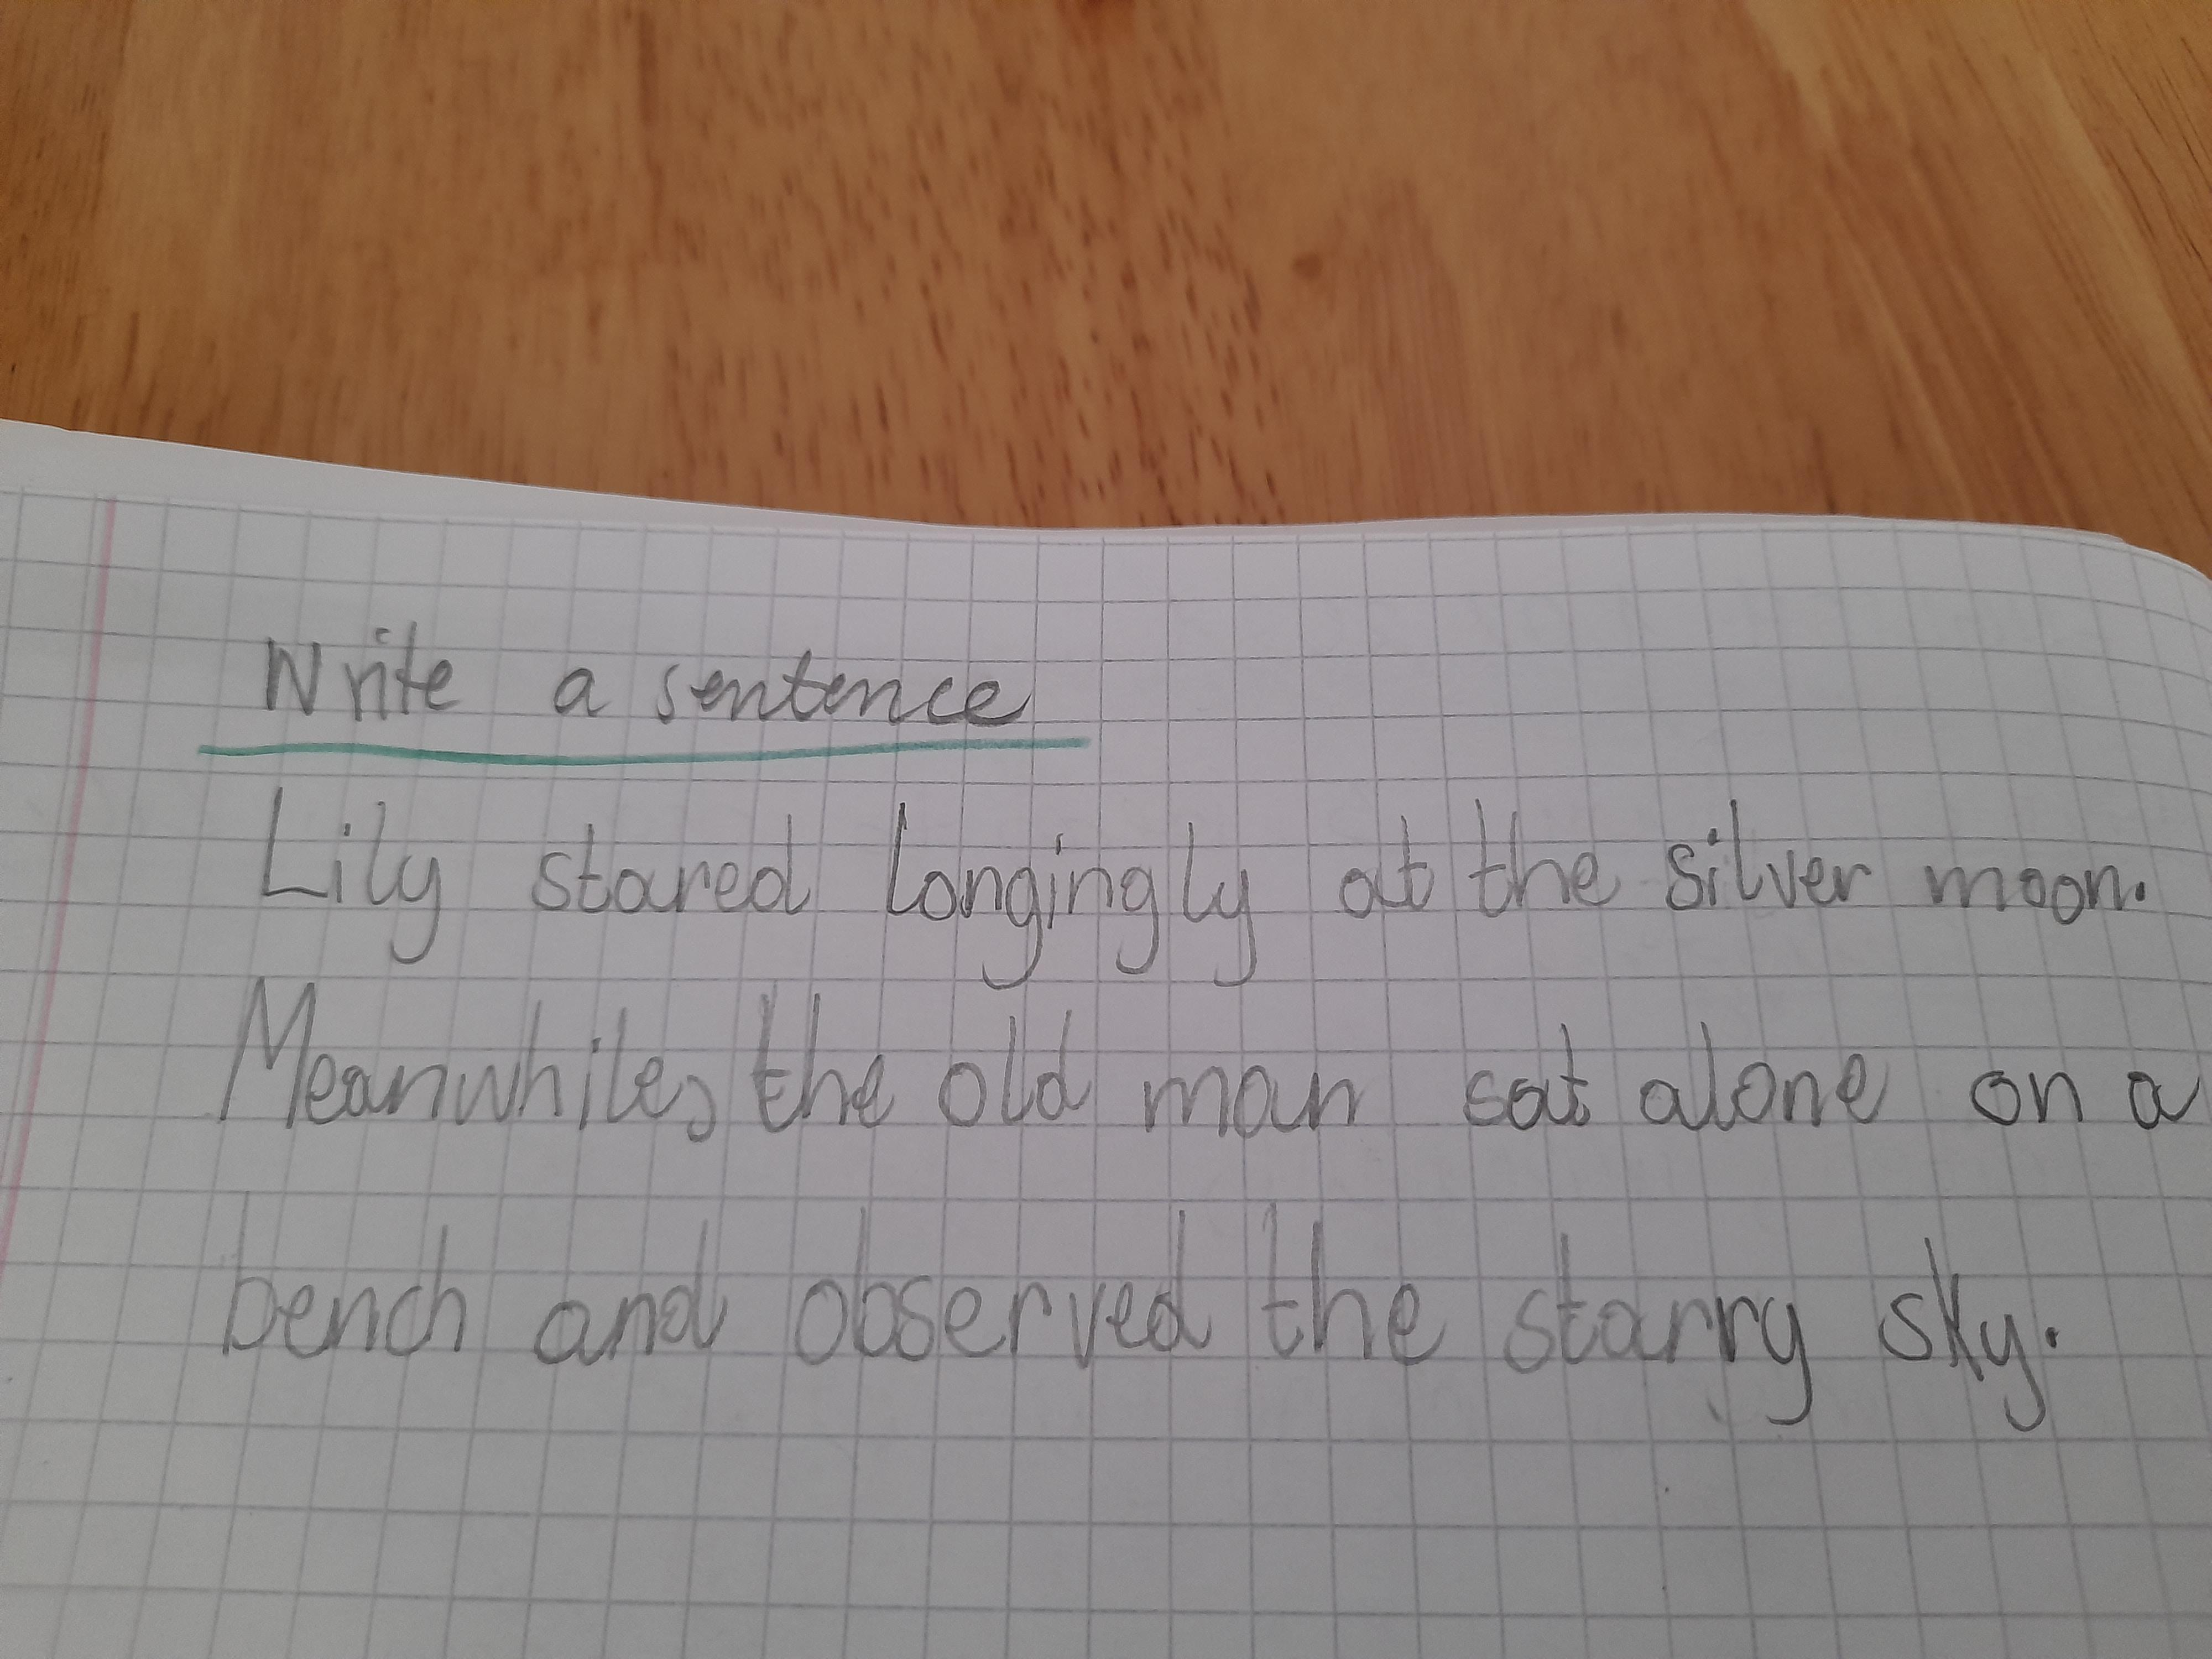 Write a sentence
Lily stared longingly at the silver moon.
Meanwhile, the old man sat alone on a
bench and observed the starry sky.